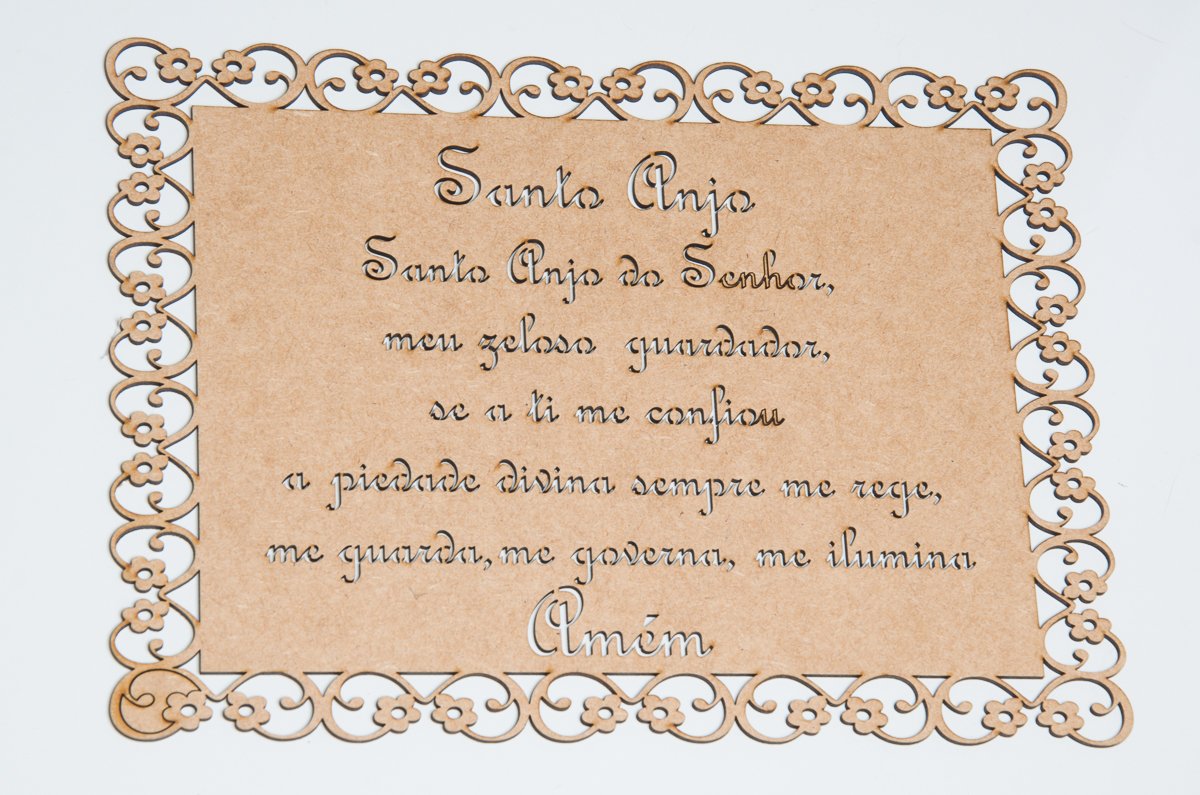 Santo Anjo
Santo Anjo do Senhor,
meu zeloso guardador,
se a ti me confiou
a piedade divina sempre me rege,
me guarda, me governa, me ilumina
Amém